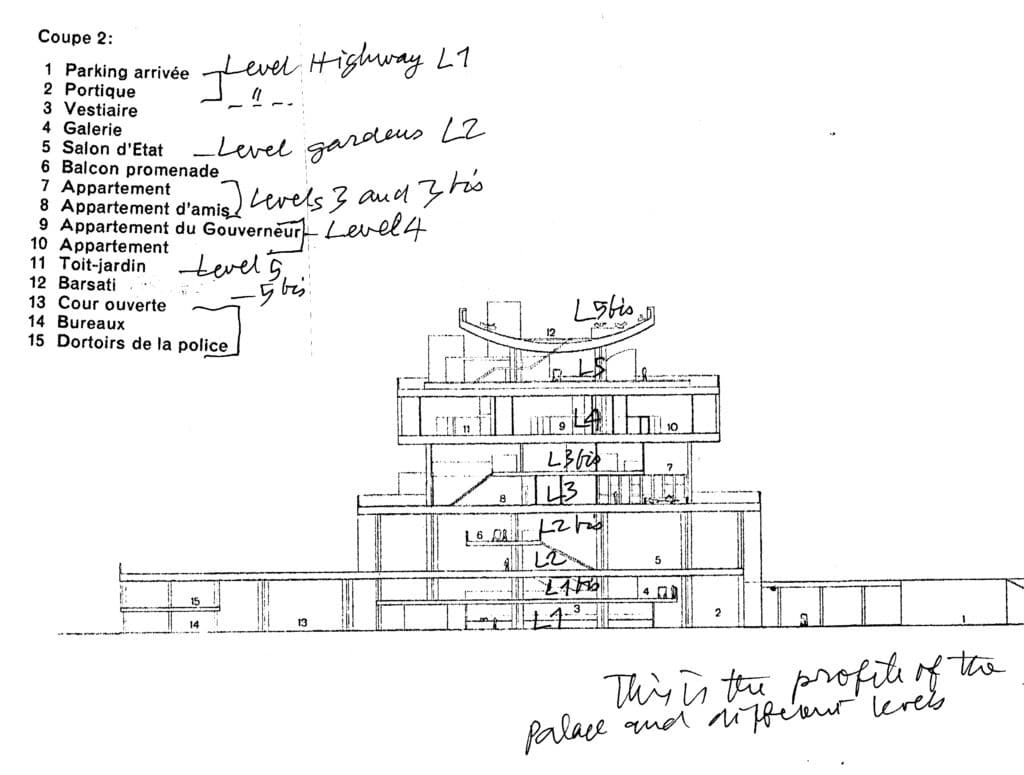 Coupe 2:
1 Parking arrivée Level Highway L1
2 Portique — " —
3 Vestiaire
4 Galerie
5 Salon d'Etat — Level gardens L2
6 Balcon promenade
7 Appartement
8 Appartement d'amis Levels 3 and 3 bis
9 Appartement du Gouverneur — Level 4
10 Appartement
11 Toit-jardin — Level 5
12 Barsati — 5 bis
13 Cour ouverte
14 Bureaux
15 Dortoirs de la police
L5bis
12
L5
11 9 L4 10
L3bis 7
8 L3
6 L2 bis
L2 5
L1bis 4
15 3 2
14 13 L1 1
This is the profile of the
palace and different levels